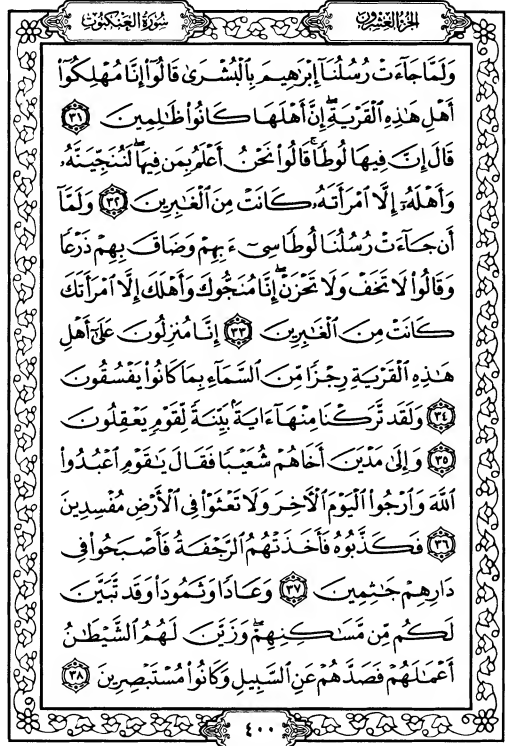 سُورَةُ العَنكَبُوتِ
الجُزْءُ العِشْرُونَ
وَلَمَّا جَآءَتْ رُسُلُنَآ إِبْرَٰهِيمَ بِٱلْبُشْرَىٰ قَالُوٓا۟ إِنَّا مُهْلِكُوٓا۟
أَهْلِ هَٰذِهِ ٱلْقَرْيَةِ ۖ إِنَّ أَهْلَهَا كَانُوا۟ ظَٰلِمِينَ ٣١
قَالَ إِنَّ فِيهَا لُوطًا ۚ قَالُوا۟ نَحْنُ أَعْلَمُ بِمَن فِيهَا ۖ لَنُنَجِّيَنَّهُۥ
وَأَهْلَهُۥٓ إِلَّا ٱمْرَأَتَهُۥ كَانَتْ مِنَ ٱلْغَٰبِرِينَ ٣٢ وَلَمَّآ
أَن جَآءَتْ رُسُلُنَا لُوطًا سِىٓءَ بِهِمْ وَضَاقَ بِهِمْ ذَرْعًا
وَقَالُوا۟ لَا تَخَفْ وَلَا تَحْزَنْ ۖ إِنَّا مُنَجُّوكَ وَأَهْلَكَ إِلَّا ٱمْرَأَتَكَ
كَانَتْ مِنَ ٱلْغَٰبِرِينَ ٣٣ إِنَّا مُنزِلُونَ عَلَىٰٓ أَهْلِ
هَٰذِهِ ٱلْقَرْيَةِ رِجْزًا مِّنَ ٱلسَّمَآءِ بِمَا كَانُوا۟ يَفْسُقُونَ
٣٤ وَلَقَد تَّرَكْنَا مِنْهَآ ءَايَةًۢ بَيِّنَةً لِّقَوْمٍ يَعْقِلُونَ
٣٥ وَإِلَىٰ مَدْيَنَ أَخَاهُمْ شُعَيْبًا فَقَالَ يَٰقَوْمِ ٱعْبُدُوا۟
ٱللَّهَ وَٱرْجُوا۟ ٱلْيَوْمَ ٱلْءَاخِرَ وَلَا تَعْثَوْا۟ فِى ٱلْأَرْضِ مُفْسِدِينَ
٣٦ فَكَذَّبُوهُ فَأَخَذَتْهُمُ ٱلرَّجْفَةُ فَأَصْبَحُوا۟ فِى
دَارِهِمْ جَٰثِمِينَ ٣٧ وَعَادًا وَثَمُودَا۟ وَقَد تَّبَيَّنَ
لَكُم مِّن مَّسَٰكِنِهِمْ ۖ وَزَيَّنَ لَهُمُ ٱلشَّيْطَٰنُ
أَعْمَٰلَهُمْ فَصَدَّهُمْ عَنِ ٱلسَّبِيلِ وَكَانُوا۟ مُسْتَبْصِرِينَ ٣٨
٤٠٠